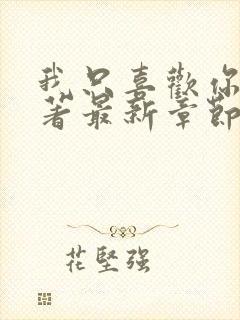 我只喜歡你
著最新章節
花堅強